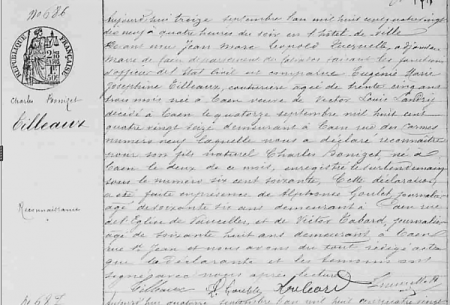 No 686
Charles Bomzet
Tilleaux
Reconnaissance
RÉPUBLIQUE FRANÇAISE
Aujourd'hui treize septembre l'an mil huit cent quatre vingt
dix neuf à quatre heures du soir en l'hôtel de ville
devant nous Jean Marc Léopold adjoint au
Maire de Caen département du Calvados faisant les fonctions
d'officier de l'état civil est comparue Eugénie Marie
Joséphine Tilleaux, couturière âgée de trente cinq ans
trois mois née à Caen veuve de Victor Louis
décédé à Caen le quatorze septembre mil huit cent
quatre vingt seize demeurant à Caen rue des Carmes
numéro neuf laquelle nous a déclaré reconnaître
pour son fils naturel Charles Bomzet né à
Caen le deux de ce mois, enregistré le surlendemain
sous le numéro six cent soixante. Cette déclaration
est faite en présence de Alphonse Goulet, journalier
âgé de soixante dix ans demeurant à Caen rue
de l'Eglise de Vaucelles, et de Victor Tabard, journalier
âgé de soixante huit ans demeurant à Caen
rue St Jean et nous avons du tout rédigé acte
que la déclarante et les témoins ont
signé avec nous après lecture
Tilleaux A. Goulet
No 687